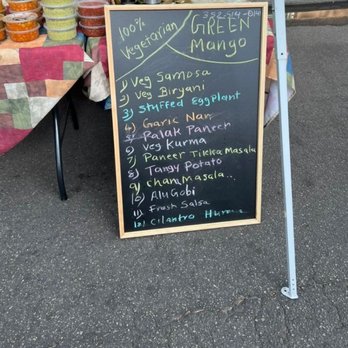 100%
Vegetarian
GREEN
Mango
1) Veg Samosa
2) Veg Biryani
3) Stuffed Eggplant
4) Garlic Nan
5) Palak Paneer
6) Veg Kurma
7) Paneer Tikka Masala
8) Tangy Potato
9) Chana Masala...
10) Alu Gobi
11) Fresh Salsa
12) Cilantro